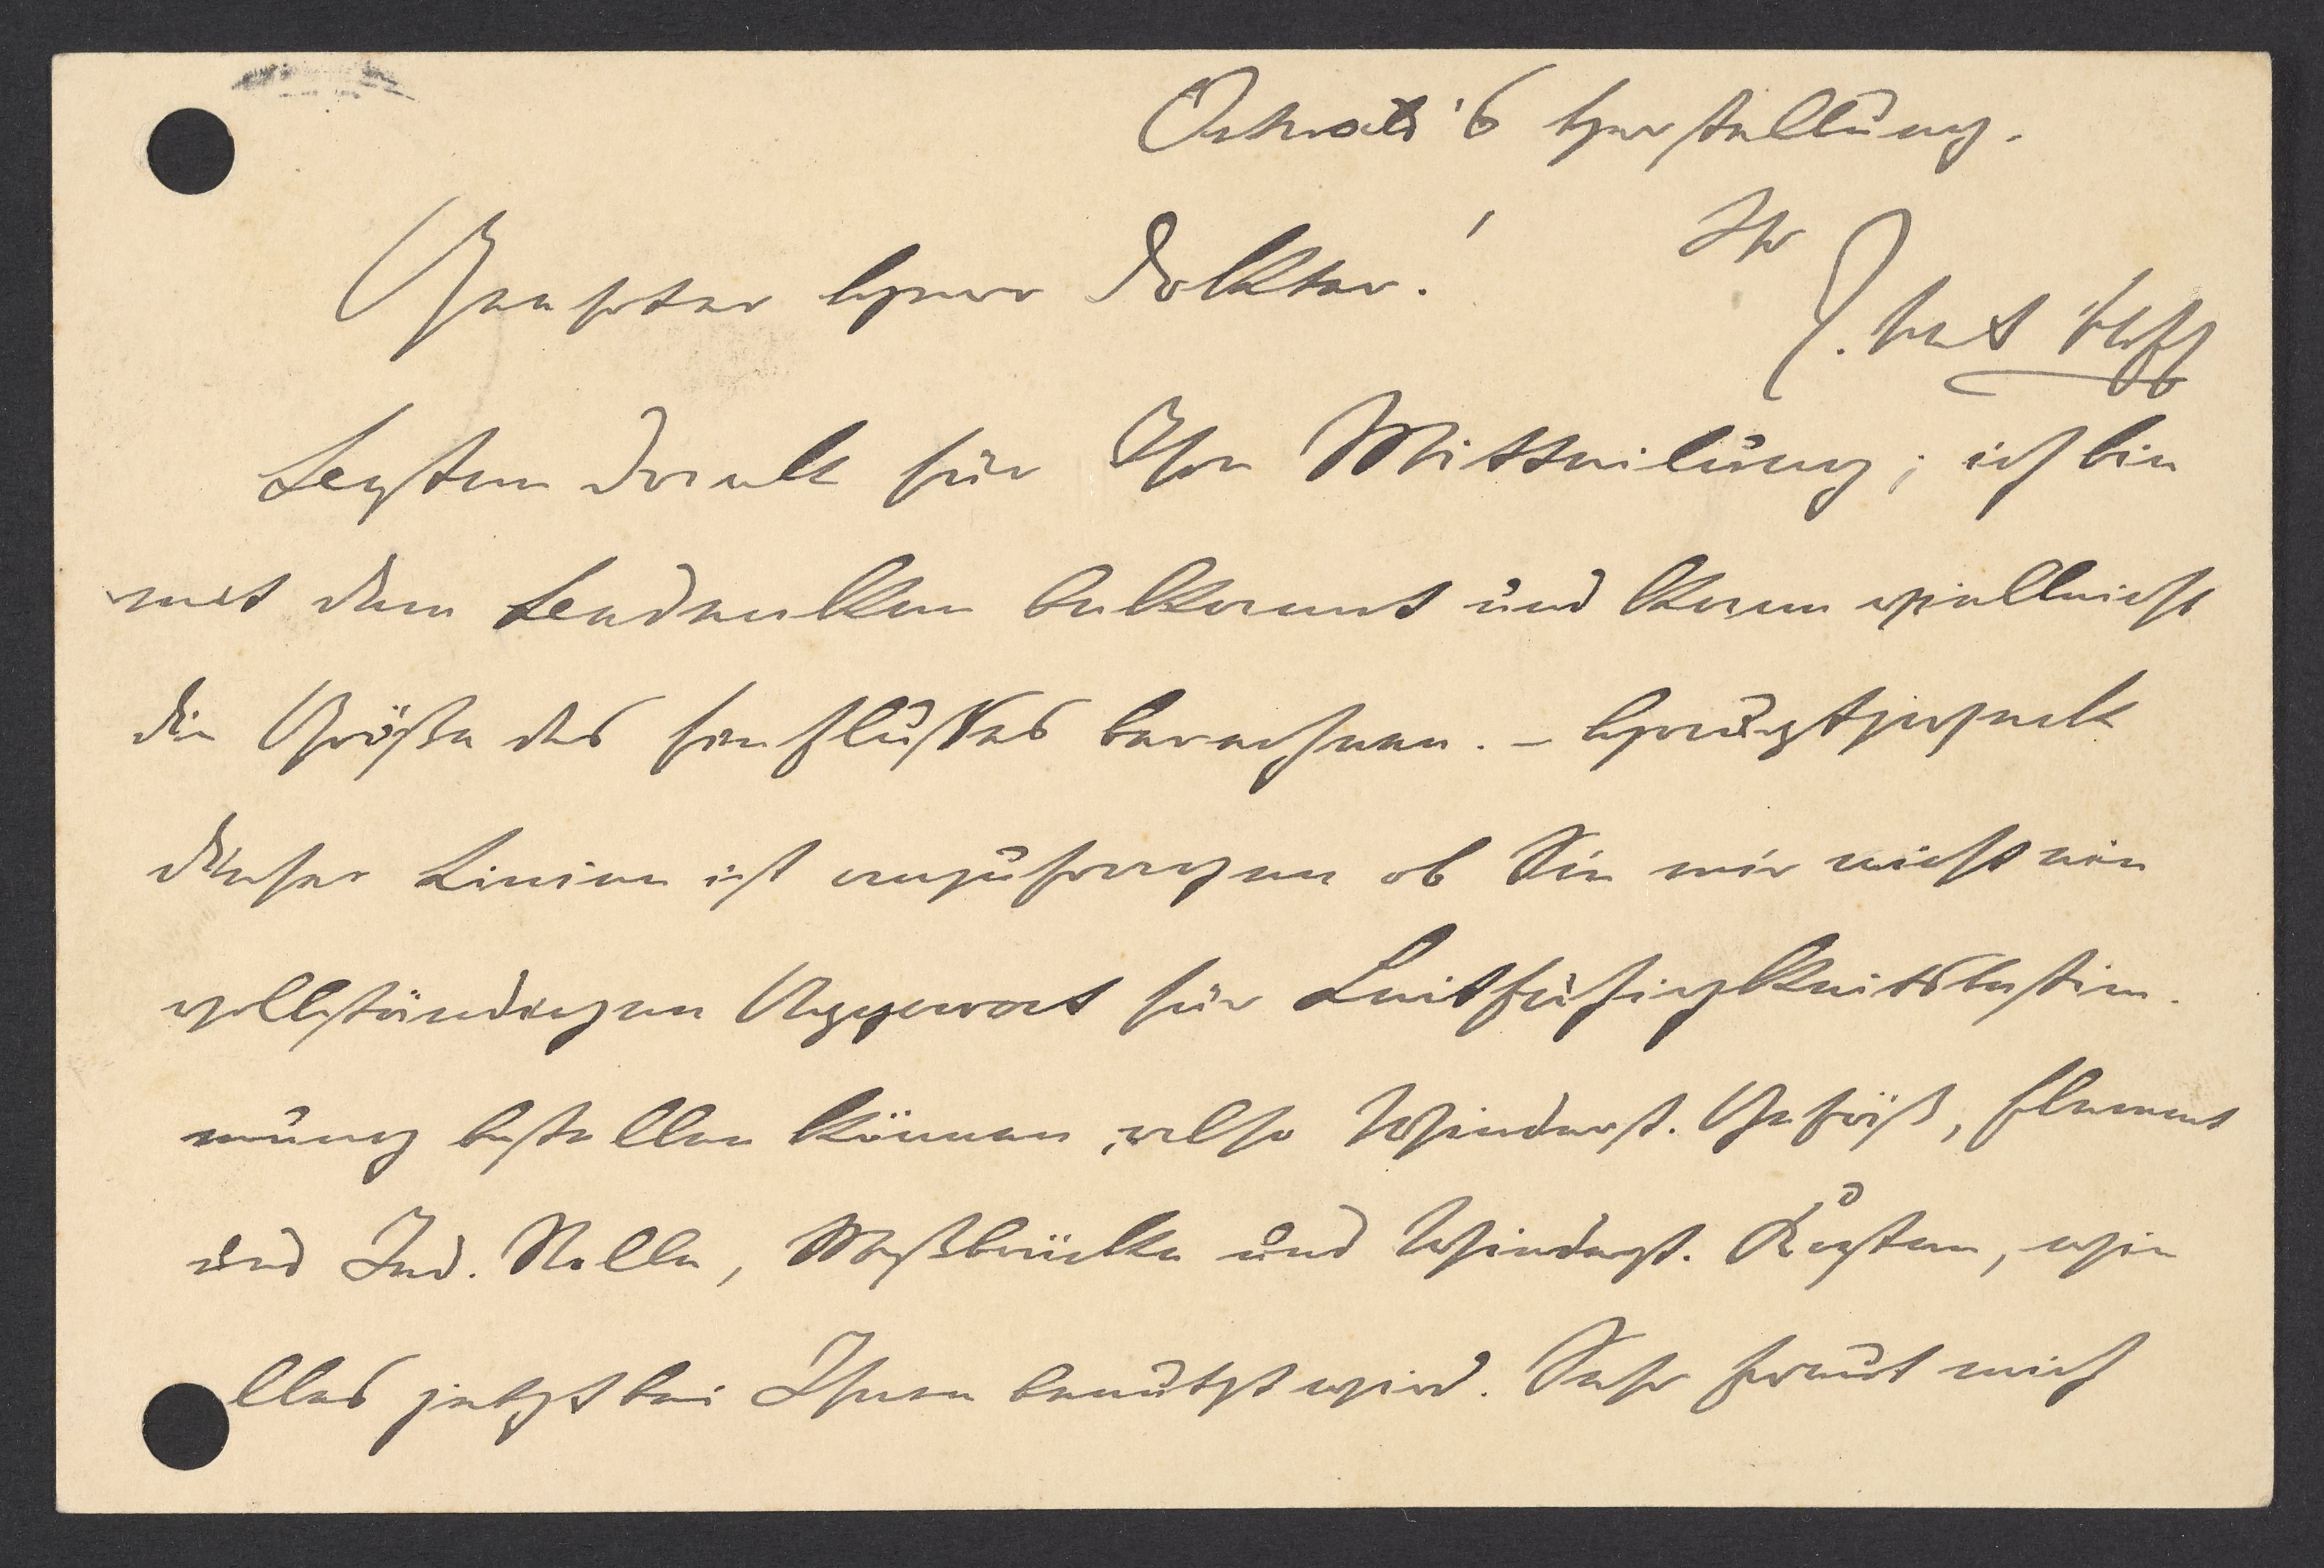 Ostwald's Herstellung.
Geehrter Herr Doktor!
Ihr
J. H. van't Hoff
Besten Dank für Ihre Mitteilung; ich bin
mit dem Bedenken bekannt und kann vielleicht
die Größe des Einflusses berechnen. – Hauptzweck
dieser Linien ist anzufragen ob Sie mir nicht ein
vollständigen Apparat für Leitfähigkeitsbestim-
mung bestellen können, also Widerst. Gefäß, Element
und Ind. Rolle, Meßbrücke und Widerst. Kasten, wie
alles jetzt bei Ihnen benutzt wird. Sehr freut mich